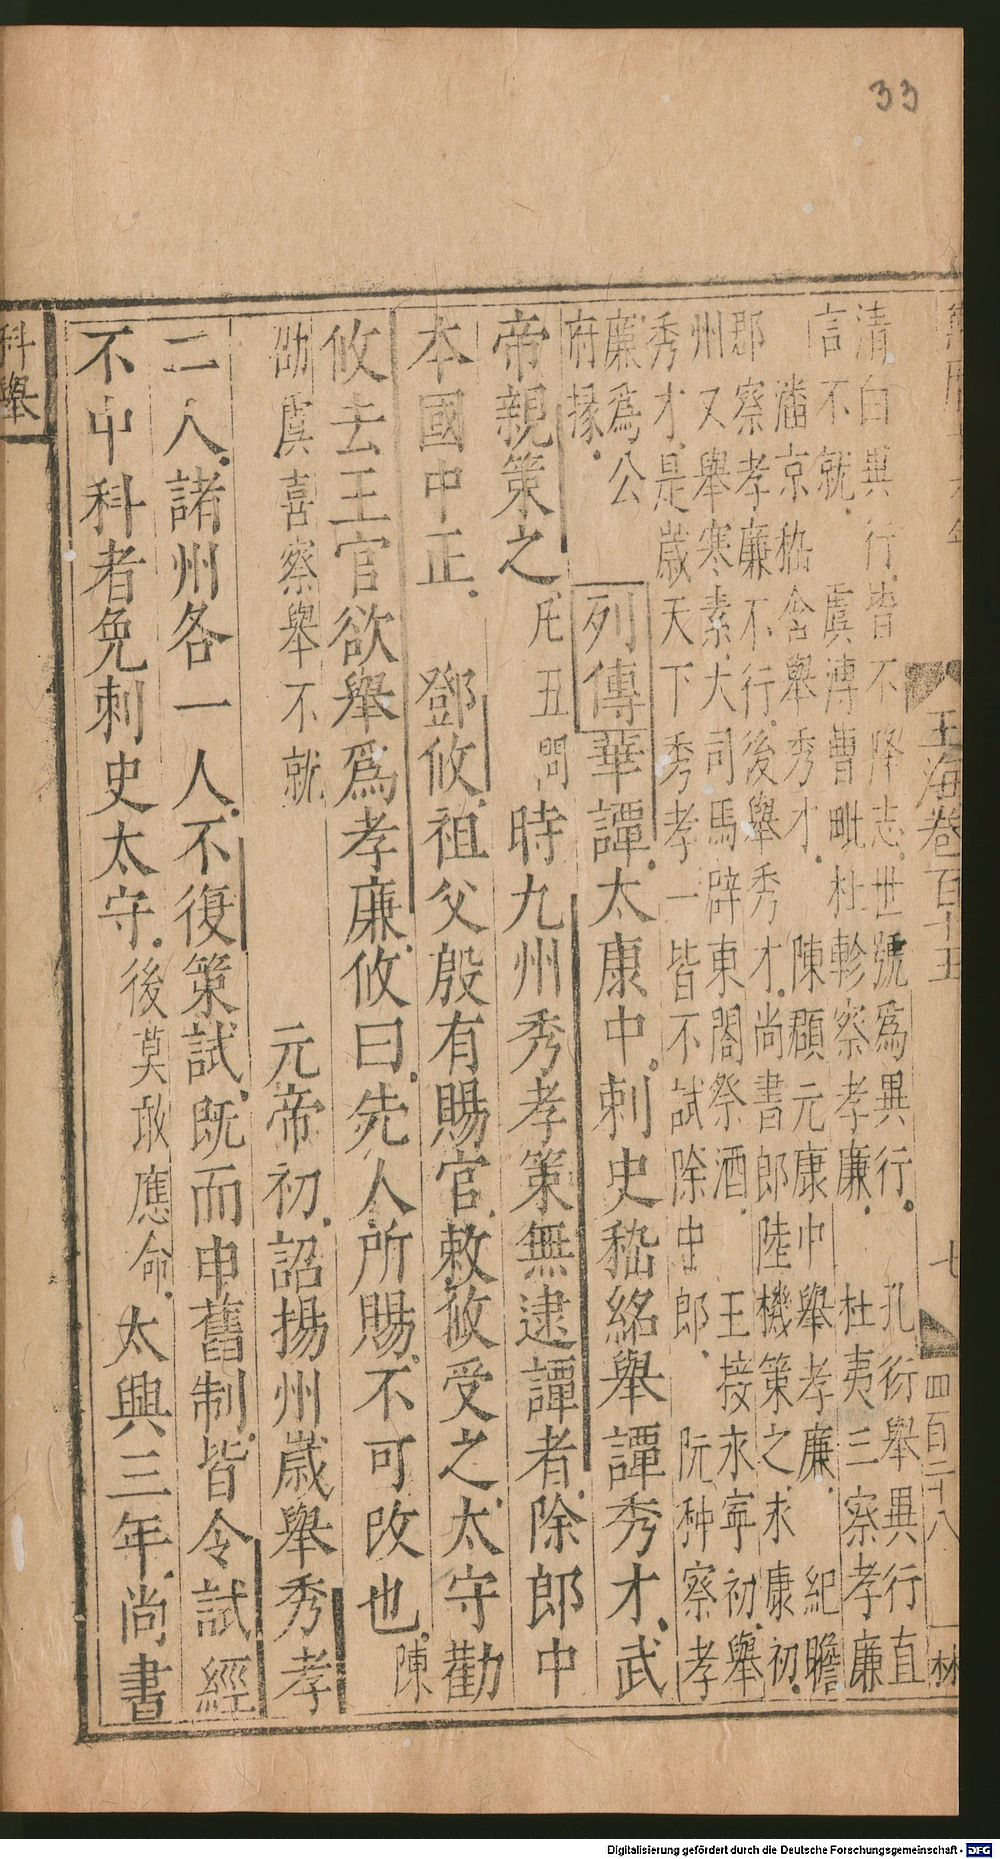 33
玉海卷百十五
七
四百二十八
林
清白異行皆不降志世號爲異行 孔衍舉異行直
言不就 虞溥曹毗杜軫察孝廉 杜夷三察孝廉
潘京嵇含舉秀才 陳頵元康中舉孝廉 紀瞻
郡察孝廉不行後舉秀才尚書郎陸機策之永康初
州又舉寒素大司馬辟東閤祭酒 王接永寧初舉
秀才是歲天下秀孝一皆不試除中郎 阮种察孝
廉爲公
府掾
列傳華譚太康中刺史嵇紹舉譚秀才武
帝親策之凡五問時九州秀孝策無逮譚者除郎中
本國中正 鄧攸祖父殷有賜官敕攸受之太守勸
攸去王官欲舉爲孝廉攸曰先人所賜不可改也陳
劭虞喜察舉不就 元帝初詔揚州歲舉秀孝
二人諸州各一人不復策試既而申舊制皆令試經
不中科者免刺史太守後莫敢應命太興三年尚書
科舉
Digitalisierung gefördert durch die Deutsche Forschungsgemeinschaft - DFG